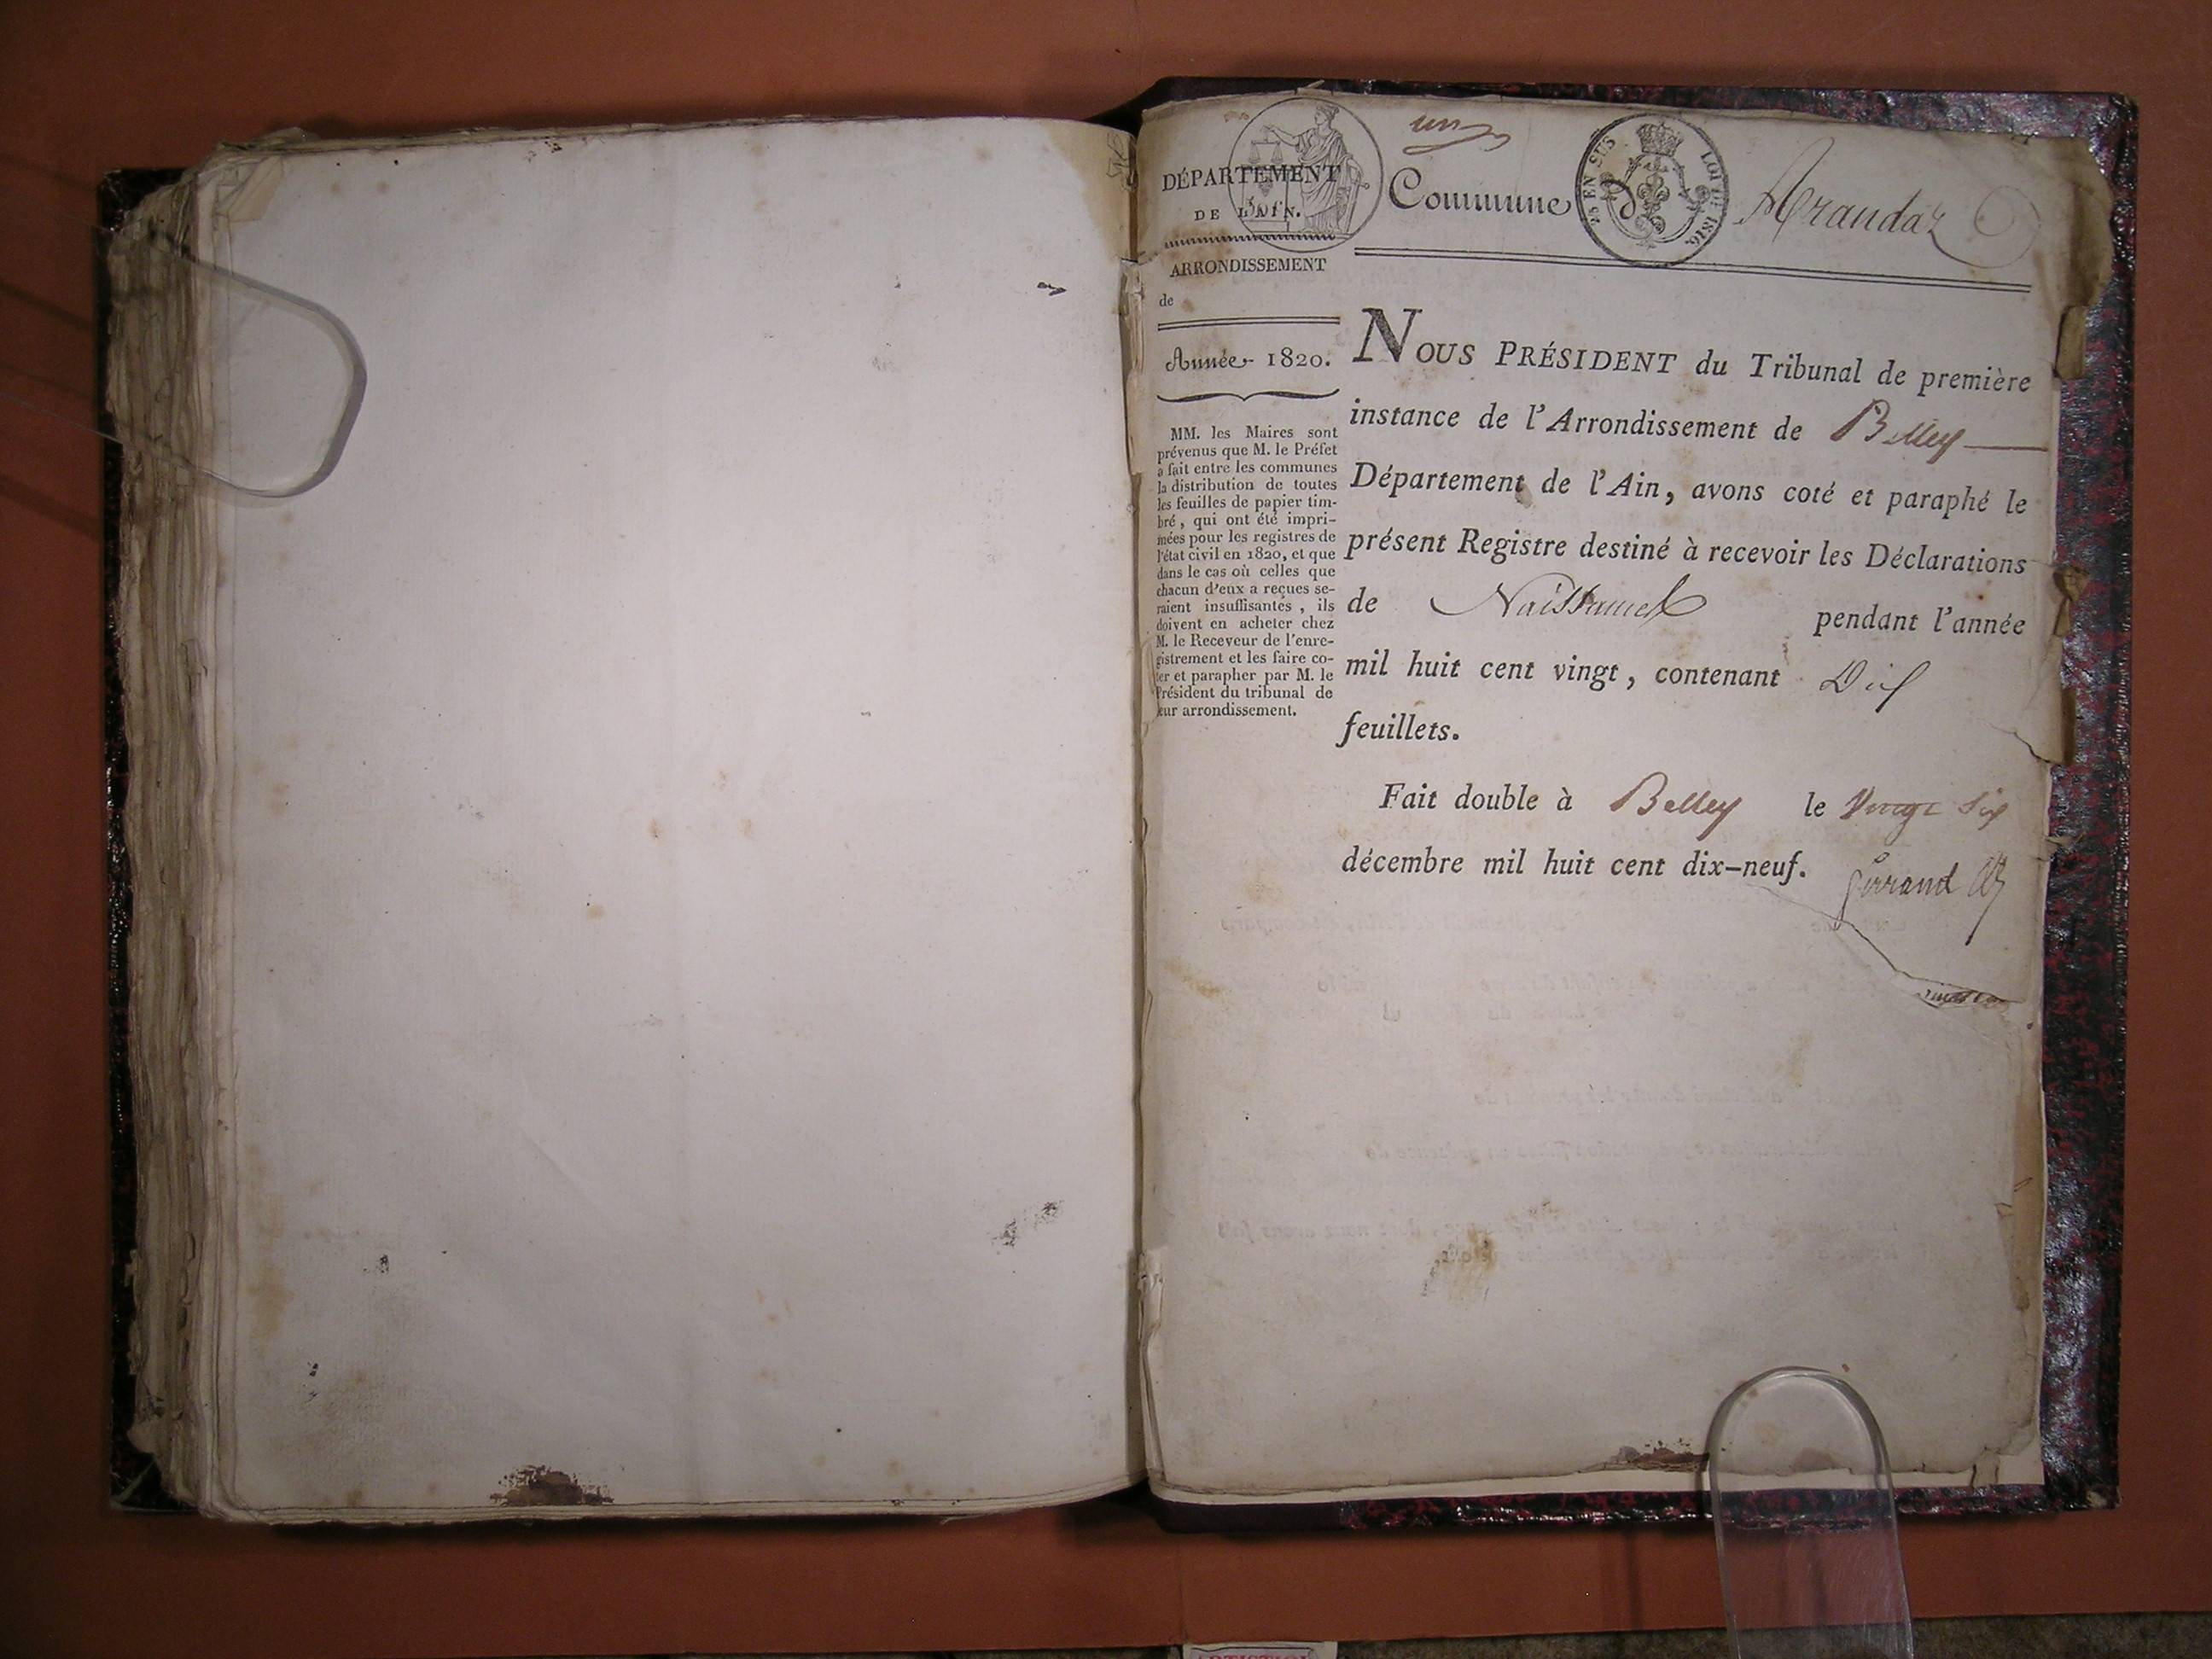 un
DÉPARTEMENT
DE L'AIN.
Commune de Arandaz
25 EN SUS
LOI DE 1816.
ARRONDISSEMENT
de
Année 1820.
MM. les Maires sont
prévenus que M. le Préfet
a fait entre les communes
la distribution de toutes
les feuilles de papier tim-
bré, qui ont été impri-
mées pour les registres de
l'état civil en 1820, et que
dans le cas où celles que
chacun d'eux a reçues se-
raient insuffisantes, ils
doivent en acheter chez
M. le Receveur de l'enre-
gistrement et les faire co-
ter et parapher par M. le
Président du tribunal de
leur arrondissement.
NOUS PRÉSIDENT du Tribunal de première
instance de l'Arrondissement de Belley
Département de l'Ain, avons coté et paraphé le
présent Registre destiné à recevoir les Déclarations
de Naissances pendant l'année
mil huit cent vingt, contenant Dix
feuillets.
Fait double à Belley le Vingt Six
décembre mil huit cent dix-neuf.